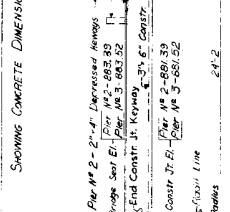 SHOWING CONCRETE DIMENSIO
Pier Nº 2 - 2"x4" Depressed Keways
Bridge Seat El. Pier Nº 2-883.39
Pier Nº 3-883.52
End Constr. Jt. Keyway
3'-6" Constr
Constr Jt. El. Pier Nº 2-881.39
Pier Nº 3-881.52
Line
24'-2